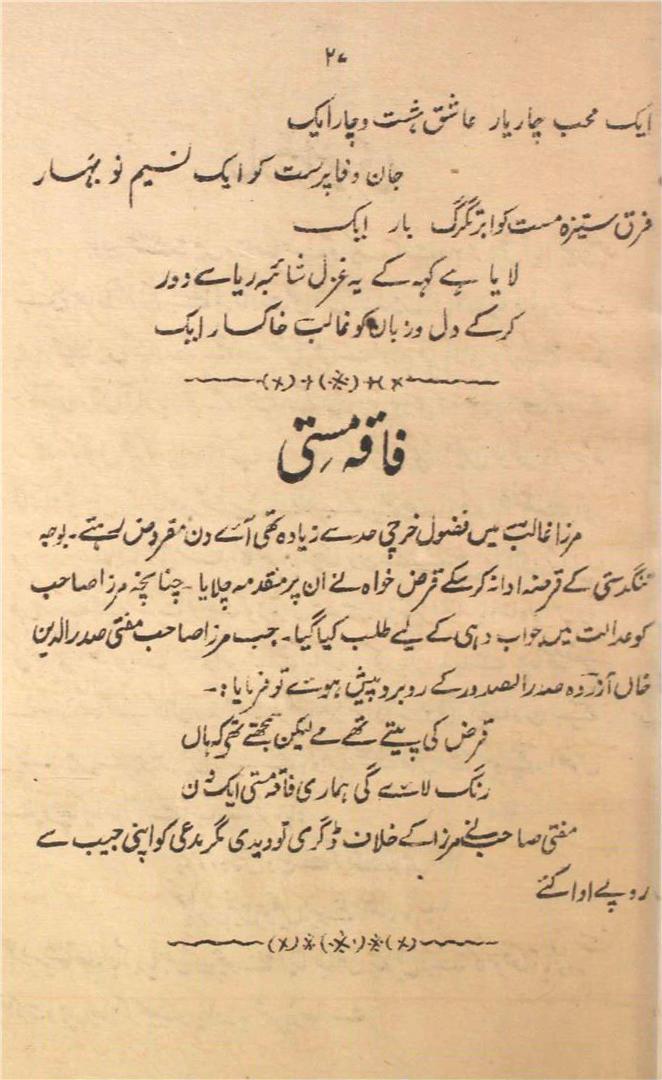 ۲۷
ایک محب چار یار عاشق ہشت و چار ایک
جان وفا پرست کو ایک نسیم نو بہار
فرق ستیزہ مست کو ابر تگرگ بار ایک
لایا ہے کہہ کے یہ غزل شائبہ ریا سے دور
کر کے دل و زبان کو غالب خاکسار ایک
فاقہ مستی
مرزا غالب میں فضول خرچی حد سے زیادہ تھی آئے دن مقروض رہتے۔ بوجہ
تنگدستی کے قرضہ ادا نہ کر سکے قرض خواہ نے ان پر مقدمہ چلایا۔ چنانچہ مرزا صاحب
کو عدالت میں جواب دہی کے لیے طلب کیا گیا۔ جب مرزا صاحب مفتی صدر الدین
خاں آزردہ صدر الصدور کے روبرو پیش ہوئے تو فرمایا:۔
قرض کی پیتے تھے مے لیکن سمجھتے تھے کہ ہاں
رنگ لائے گی ہماری فاقہ مستی ایک دن
مفتی صاحب نے مرزا کے خلاف ڈگری تو دیدی مگر مدعی کو اپنی جیب سے
روپے ادا کئے